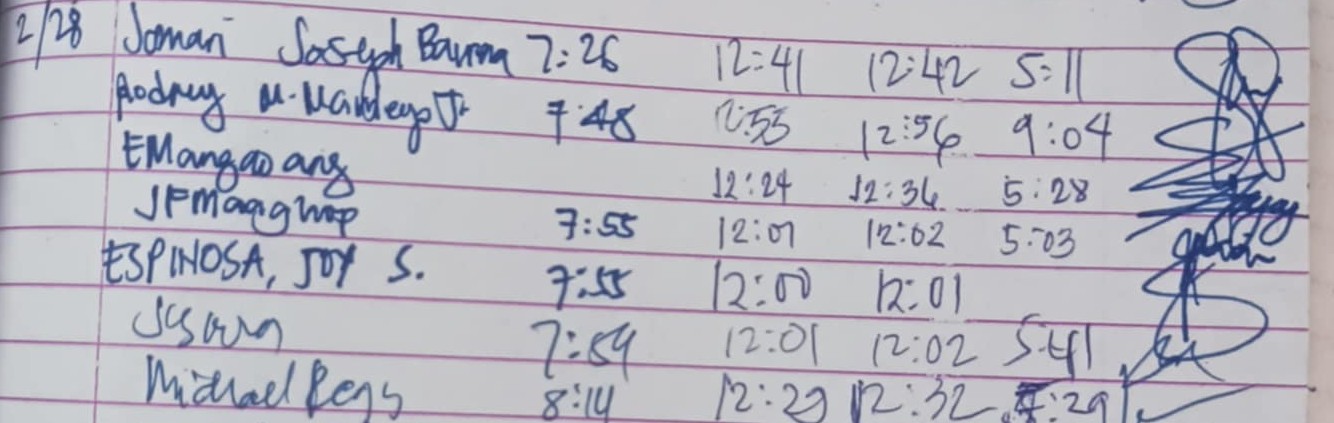 2/28 Jomari Joseph 7:26 12:41 12:42 5:11
Rodney M. Jr. 7:48 12:55 12:56 9:04
EMangaoang 12:24 12:36 5:28
7:55 12:01 12:02 5:03
ESPINOSA, JOY S. 7:55 12:00 12:01
7:59 12:01 12:02 5:41
Michael 8:14 12:29 12:32 :29